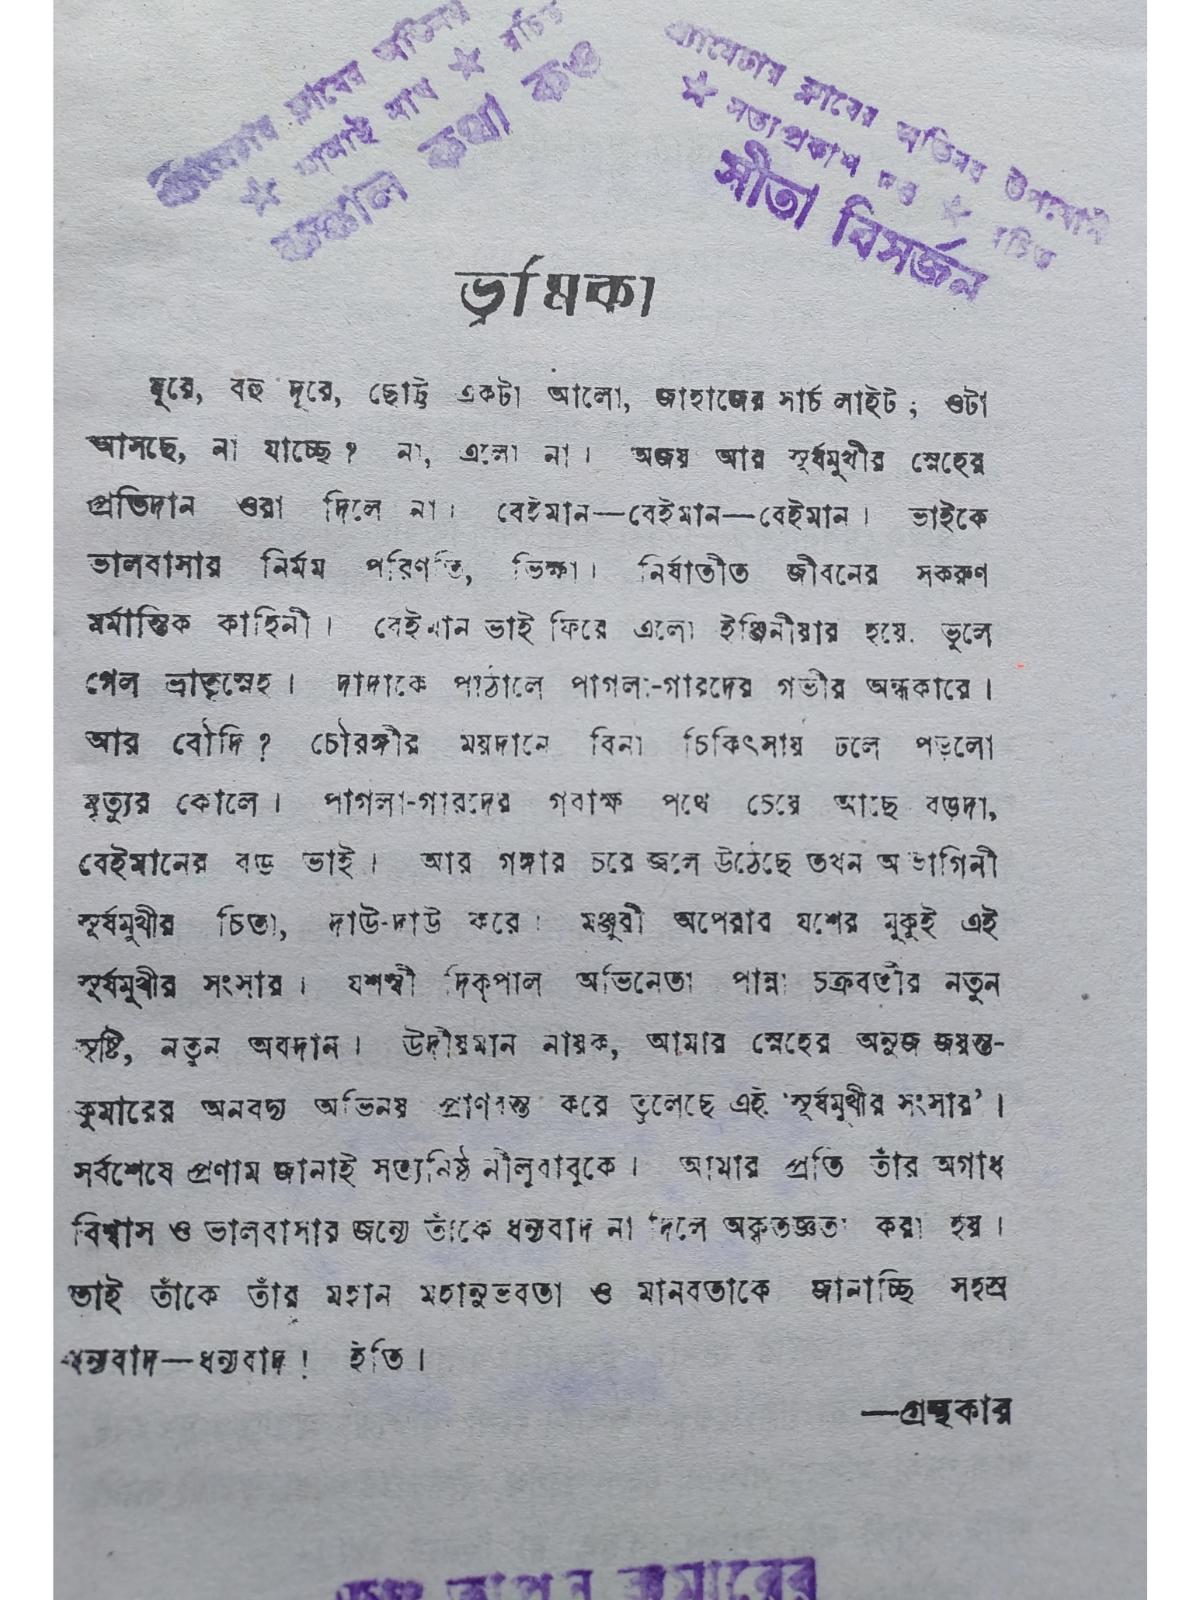 এ্যামেচার ক্লাবের অভিনয়
কানাই নাথ ★ রচিত
কঙ্কাল কথা কও
এ্যামেচার ক্লাবের অভিনয় উপযোগী
★ সত্যপ্রকাশ দত্ত ★ রচিত
সীতা বিসর্জন
ভূমিকা
দূরে, বহু দূরে, ছোট্ট একটা আলো, জাহাজের সার্চ লাইট ; ওটা
আসছে, না যাচ্ছে ? না, এলো না। অজয় আর সূর্যমুখীর স্নেহের
প্রতিদান ওরা দিলে না। বেইমান—বেইমান—বেইমান। ভাইকে
ভালবাসার নির্মম পরিণতি, ভিক্ষা। নির্যাতীত জীবনের সকরুণ
মর্মান্তিক কাহিনী। বেইমান ভাই ফিরে এলো ইঞ্জিনীয়ার হয়ে. ভুলে
গেল ভ্রাতৃস্নেহ। দাদাকে পাঠালে পাগলা-গারদের গভীর অন্ধকারে।
আর বৌদি ? চৌরঙ্গীর ময়দানে বিনা চিকিৎসায় ঢলে পড়লো
মৃত্যুর কোলে। পাগলা-গারদের গবাক্ষ পথে চেয়ে আছে বড়দা,
বেইমানের বড় ভাই। আর গঙ্গার চরে জ্বলে উঠেছে তখন অভাগিনী
সূর্যমুখীর চিতা, দাউ-দাউ করে। মঞ্জুরী অপেরার যশের মুকুই এই
সূর্যমুখীর সংসার। যশস্বী দিক্‌পাল অভিনেতা পান্না চক্রবর্তীর নতুন
সৃষ্টি, নতুন অবদান। উদীয়মান নায়ক, আমার স্নেহের অনুজ জয়ন্ত-
কুমারের অনবদ্য অভিনয় প্রাণবন্ত করে তুলেছে এই 'সূর্যমুখীর সংসার'।
সর্বশেষে প্রণাম জানাই সত্যনিষ্ঠ নীলুবাবুকে। আমার প্রতি তাঁর অগাধ
বিশ্বাস ও ভালবাসার জন্যে তাঁকে ধন্যবাদ না দিলে অকৃতজ্ঞতা করা হয়।
তাই তাঁকে তাঁর মহান মহানুভবতা ও মানবতাকে জানাচ্ছি সহস্র
ধন্যবাদ—ধন্যবাদ ! ইতি।
—গ্রন্থকার
কুমারের